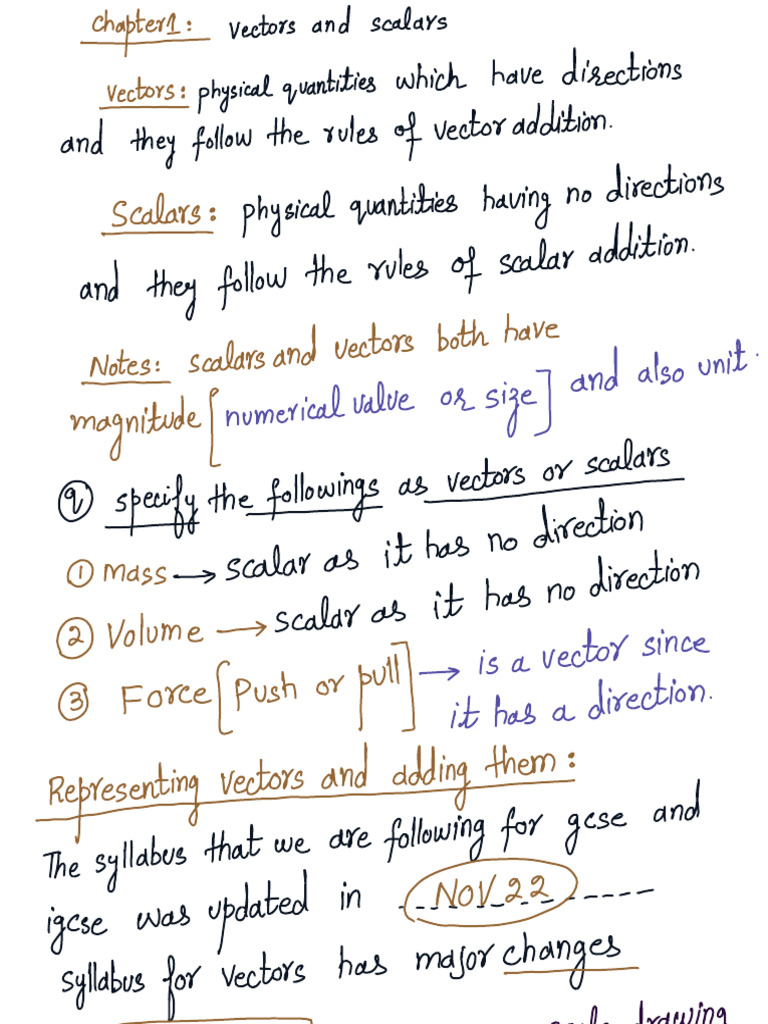 Chapter1: Vectors and scalars
Vectors: physical quantities which have directions
and they follow the rules of vector addition.
Scalars: physical quantities having no directions
and they follow the rules of scalar addition.
Notes: scalars and vectors both have
magnitude [numerical value or size] and also unit.
q specify the followings as vectors or scalars
1 Mass → scalar as it has no direction
2 Volume → scalar as it has no direction
3 Force [Push or pull] → is a vector since
it has a direction.
Representing vectors and adding them:
The syllabus that we are following for gcse and
igcse was updated in NOV 22
syllabus for vectors has major changes
drawing